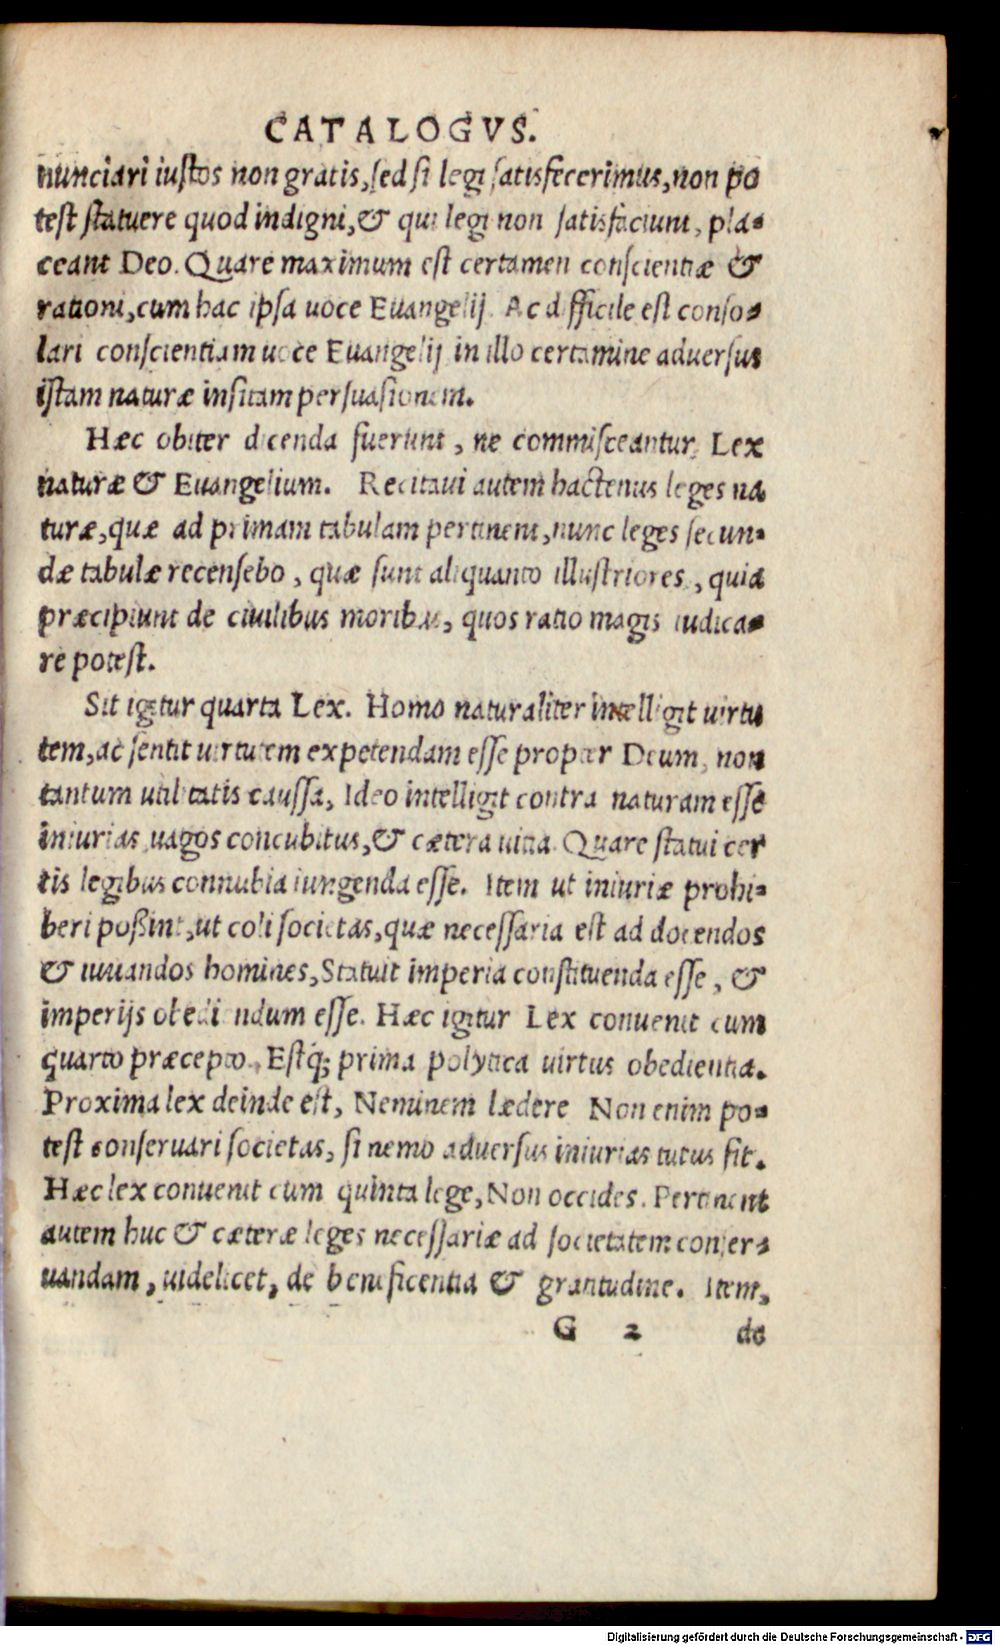 CATALOGVS.
nunciari iustos non gratis, sed si legi satisfecerimus, non po
test statuere quod indigni, & qui legi non satisfaciunt, pla-
ceant Deo. Quare maximum est certamen conscientiæ &
rationi, cum hac ipsa uoce Euangelij. Ac difficile est conso-
lari conscientiam uoce Euangelij in illo certamine aduersus
istam naturæ insitam persuasionem.
Hæc obiter dicenda fuerunt, ne commisceantur Lex
naturæ & Euangelium. Recitaui autem hactenus leges na
turæ, quæ ad primam tabulam pertinent, nunc leges secun-
dæ tabulæ recensebo, quæ sunt aliquanto illustriores, quia
præcipiunt de ciuilibus moribus, quos ratio magis iudica-
re potest.
Sit igitur quarta Lex. Homo naturaliter intelligit uirtu
tem, ac sentit uirtutem expetendam esse propter Deum, non
tantum utilitatis caussa, Ideo intelligit contra naturam esse
iniurias, uagos concubitus, & cætera uitia. Quare statui cer
tis legibus connubia iungenda esse. Item ut iniuriæ prohi-
beri poßint, ut coli societas, quæ necessaria est ad docendos
& iuuandos homines, Statuit imperia constituenda esse, &
imperijs obediendum esse. Hæc igitur Lex conuenit cum
quarto præcepto. Estq; prima polytica uirtus obedientia.
Proxima lex deinde est, Neminem lædere Non enim po-
test conseruari societas, si nemo aduersus iniurias tutus sit.
Hæc lex conuenit cum quinta lege, Non occides. Pertinent
autem huc & cæteræ leges necessariæ ad societatem conser-
uandam, uidelicet, de beneficentia & gratitudine. Item,
G 2 de
Digitalisierung gefördert durch die Deutsche Forschungsgemeinschaft - DFG